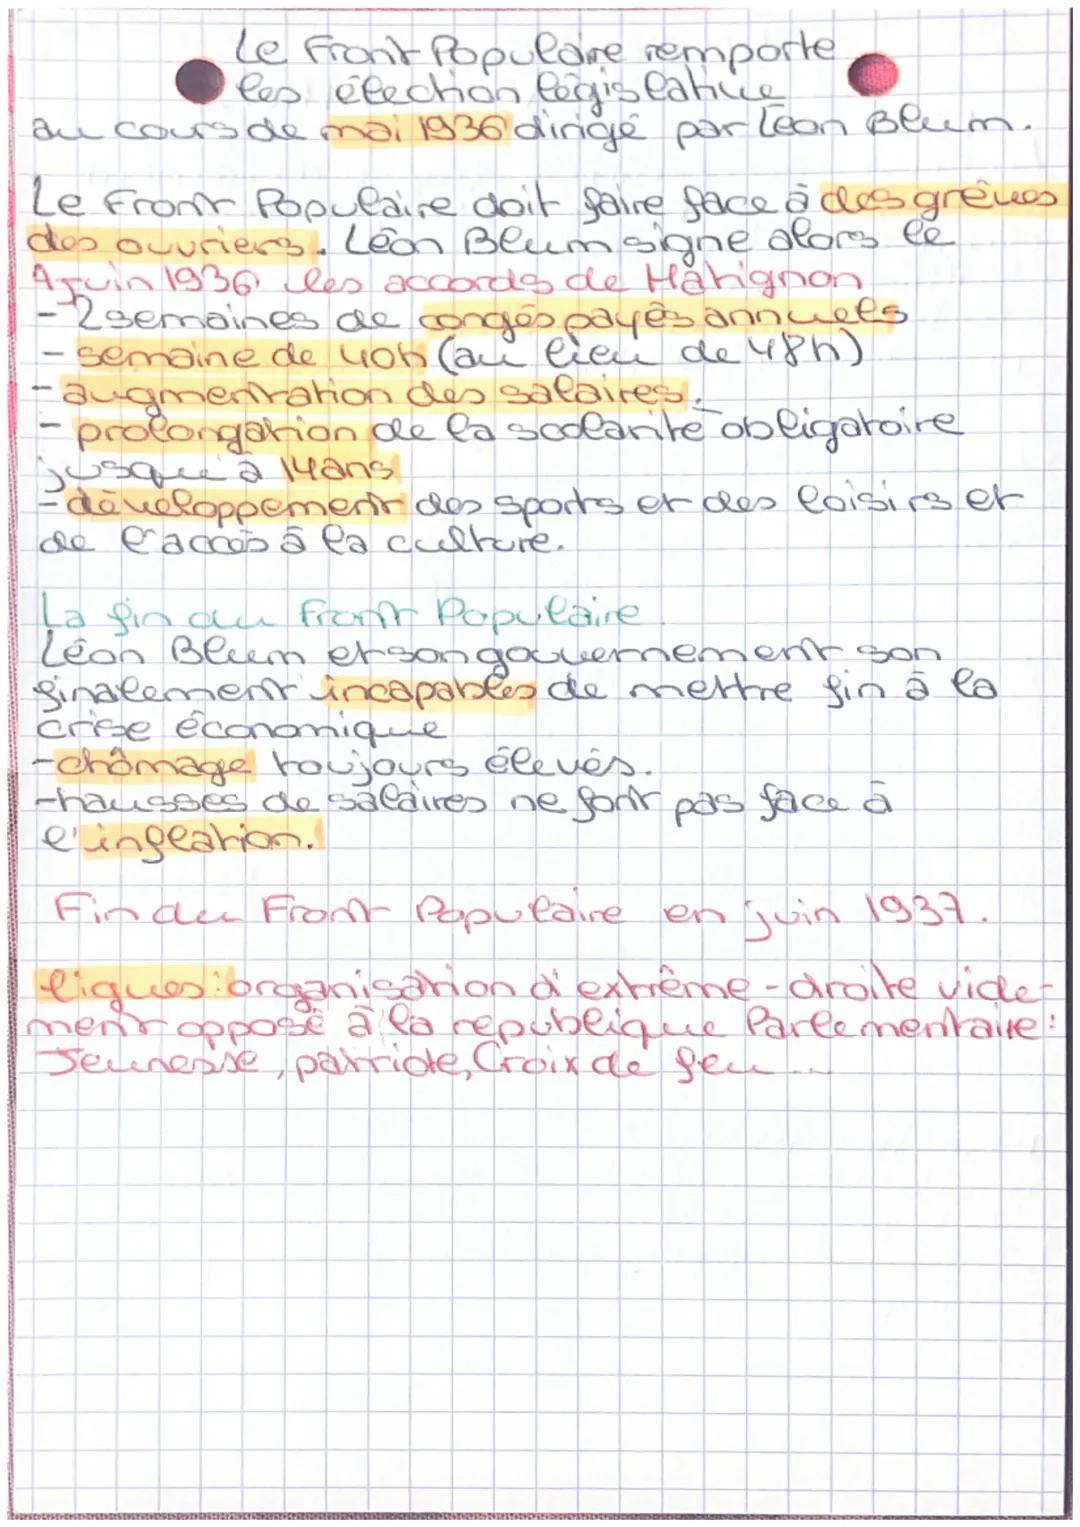 Le Front Populaire remporte
les élection législative
au cours de mai 1936 dirigé par Léon Blum.
Le Front Populaire doit faire face à des grèves
des ouvriers. Léon Blum signe alors le
7 juin 1936 les accords de Matignon
- 2 semaines de congés payés annuels
- semaine de 40h (au lieu de 48h)
- augmentation des salaires.
- prolongation de la scolarité obligatoire
jusque à 14 ans
- développement des sports et des loisirs et
de l'accès à la culture.
La fin du Front Populaire
Léon Blum et son gouvernement son
finalement incapables de mettre fin à la
crise économique
- chômage toujours élevés.
- hausses de salaires ne font pas face à
l'inflation.
Fin du Front Populaire en juin 1937.
ligues : organisation d'extrême-droite vide-
ment opposé à la republique Parlementaire :
Jeunesse, patriote, Croix de feu ...